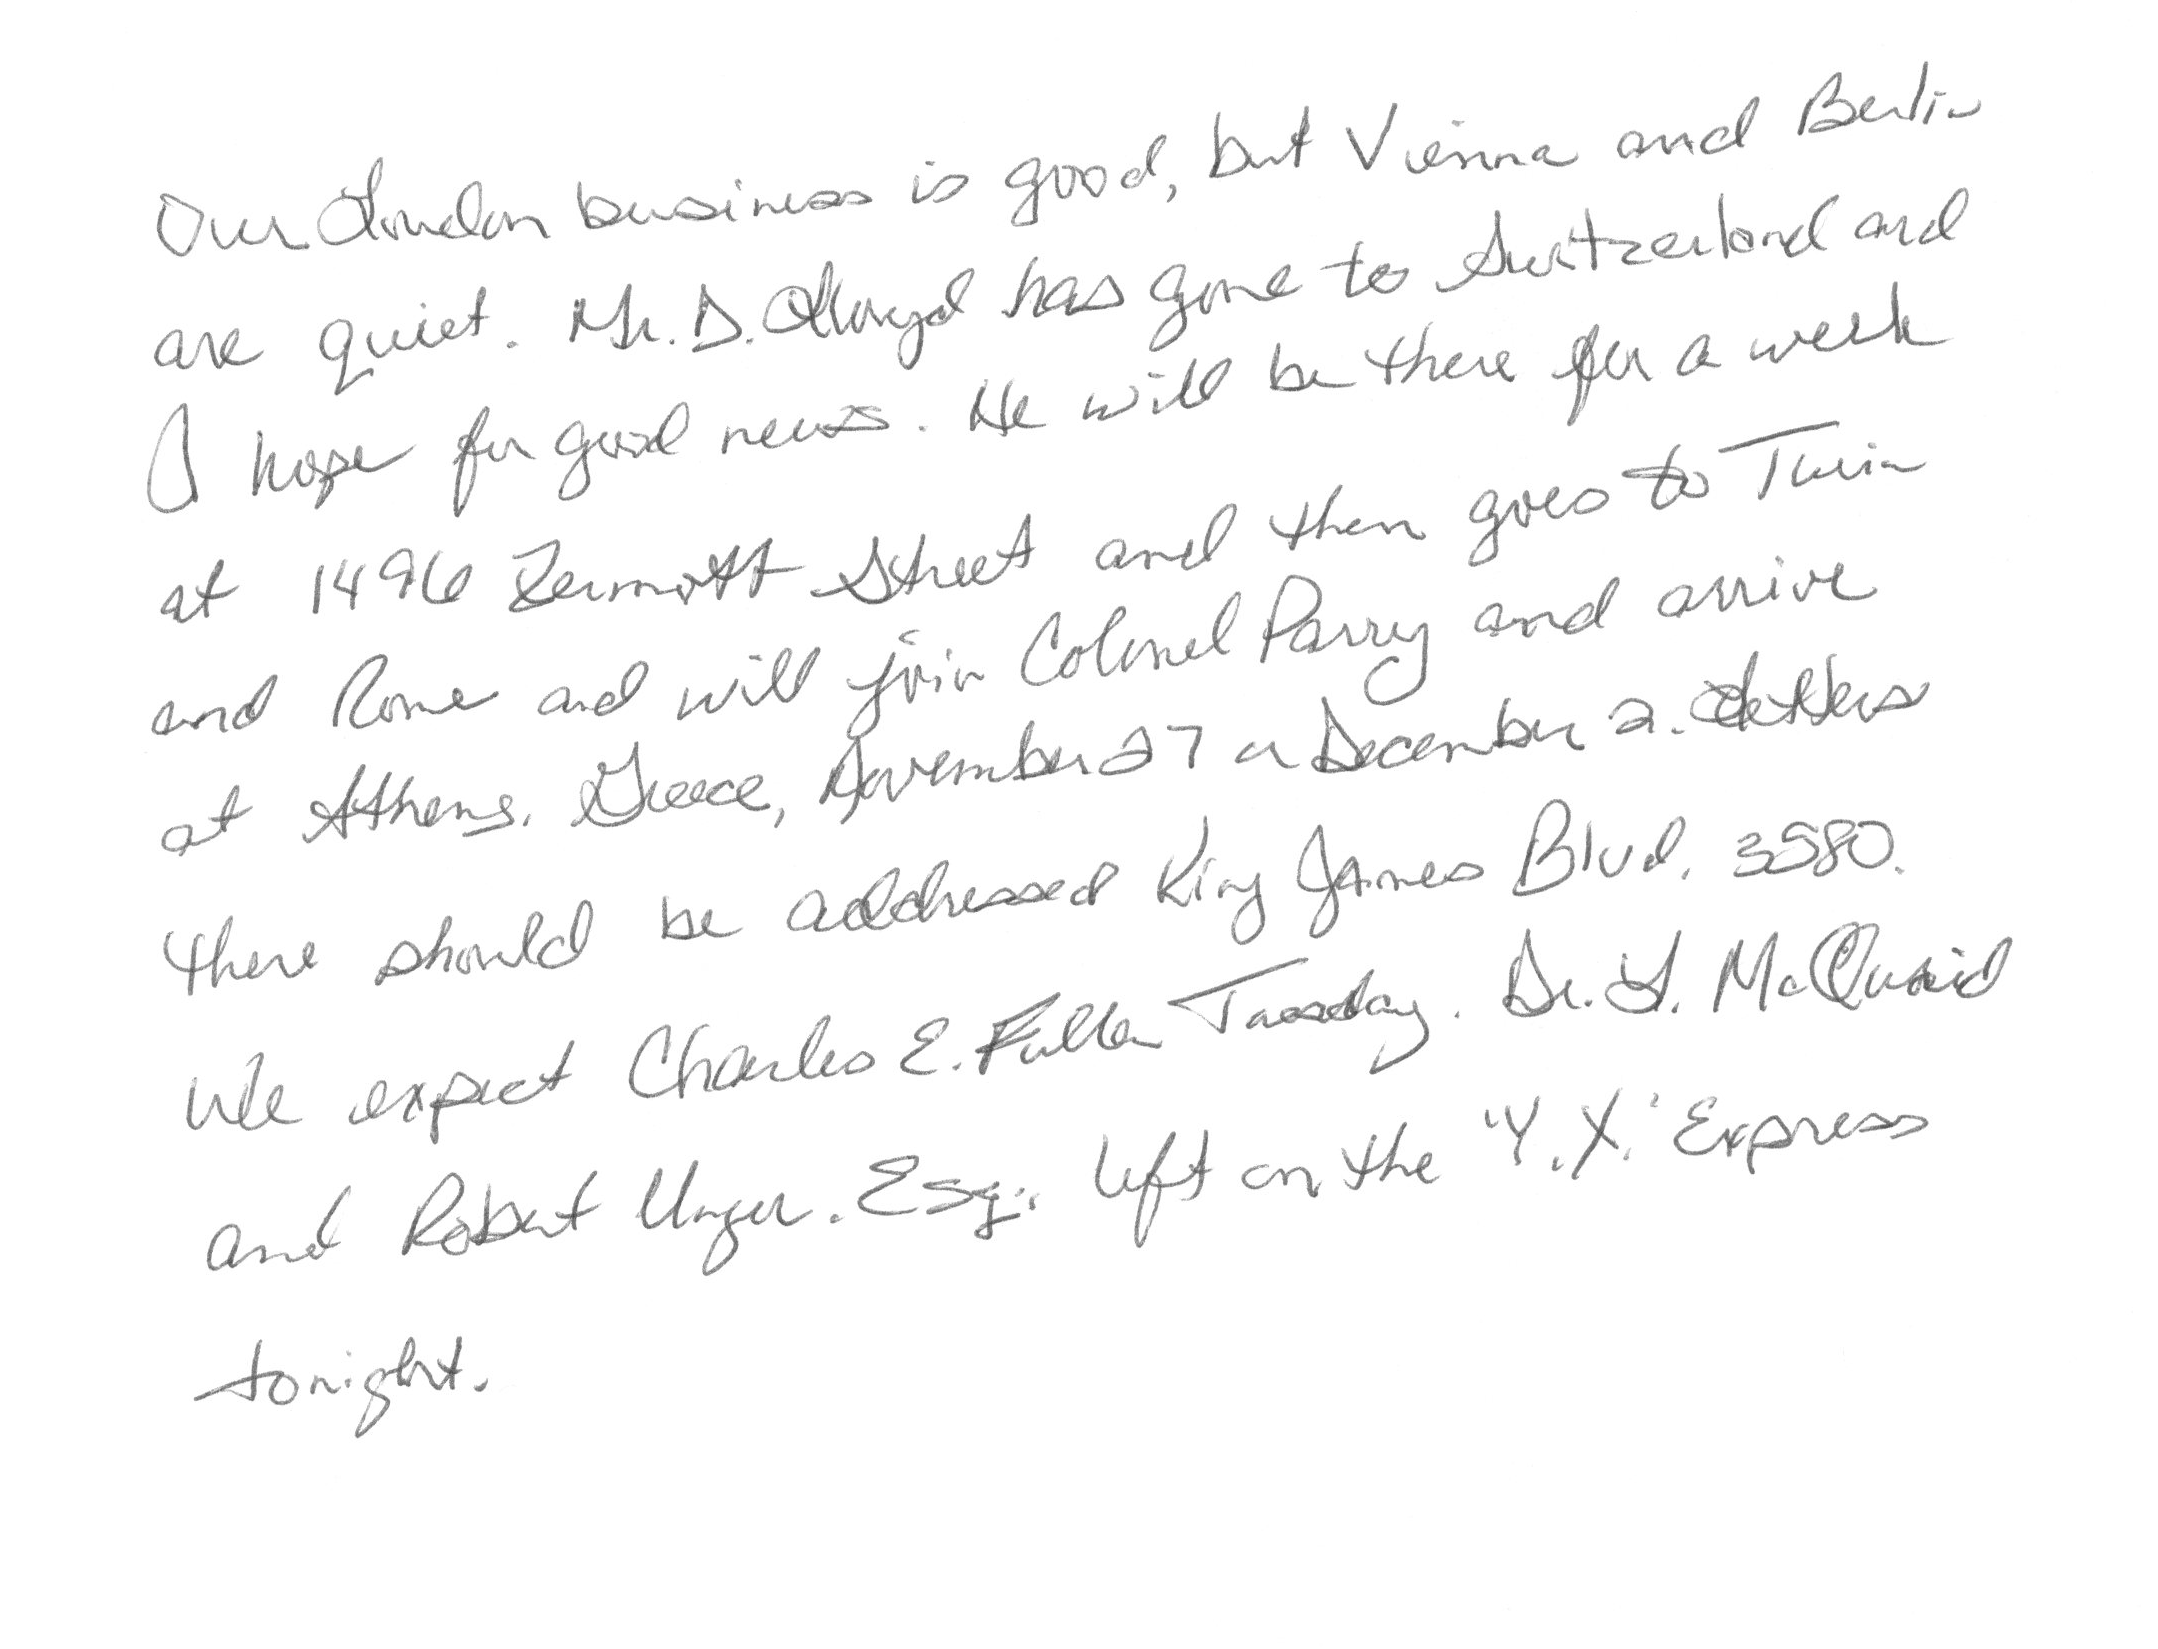 Our London business is good, but Vienna and Berlin
are quiet. Mr. D. Lloyd has gone to Switzerland and
I hope for good news. He will be there for a week
at 1496 Zermott Street and then goes to Turin
and Rome and will join Colonel Parry and arrive
at Athens, Greece, November 27 or December 2. Letters
there should be addressed King James Blvd. 3580.
We expect Charles E. Fuller Tuesday. Dr. L. McQuaid
and Robert Unger. Esq., left on the 'Y.X.' Express
tonight.